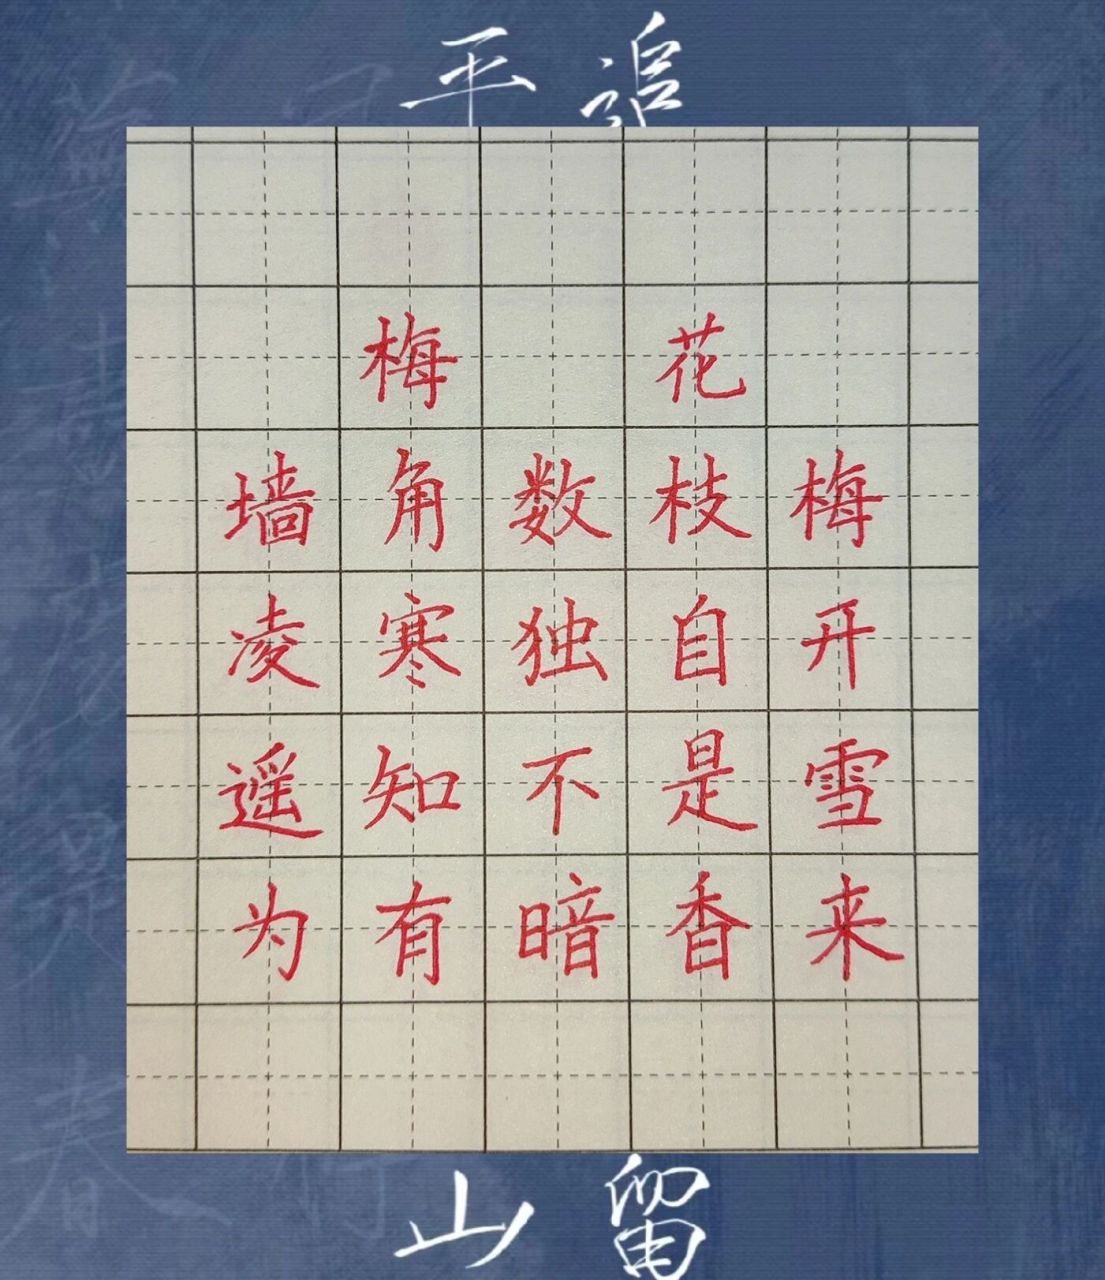 平 追
梅 花
墙角数枝梅
凌寒独自开
遥知不是雪
为有暗香来
山 留
春